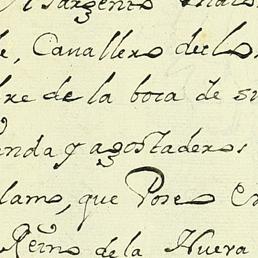 l Sargento
e, Cavallero de los
bre de la boca de su
enda y agostaderos
lamo, que Posee en
Reino de la Nueva